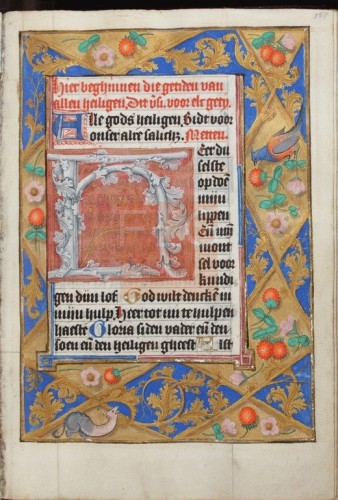 Hier beghinnen die getiden van
allen heiligen, Dit vs. voor elc getij.
Alle gods heiligen, Bidt voor
onser alre salich3. Metten.
Heer du
selste
op doē
mijn
lippen
Eñ mijn
mont
sel voor
kundi
gen dijn lof. God wilt dencken in
mijn hulp, Heer com mi te hulpen
haeste Gloria si den vader eñ den
soen eñ den heiligen gheest Als ist